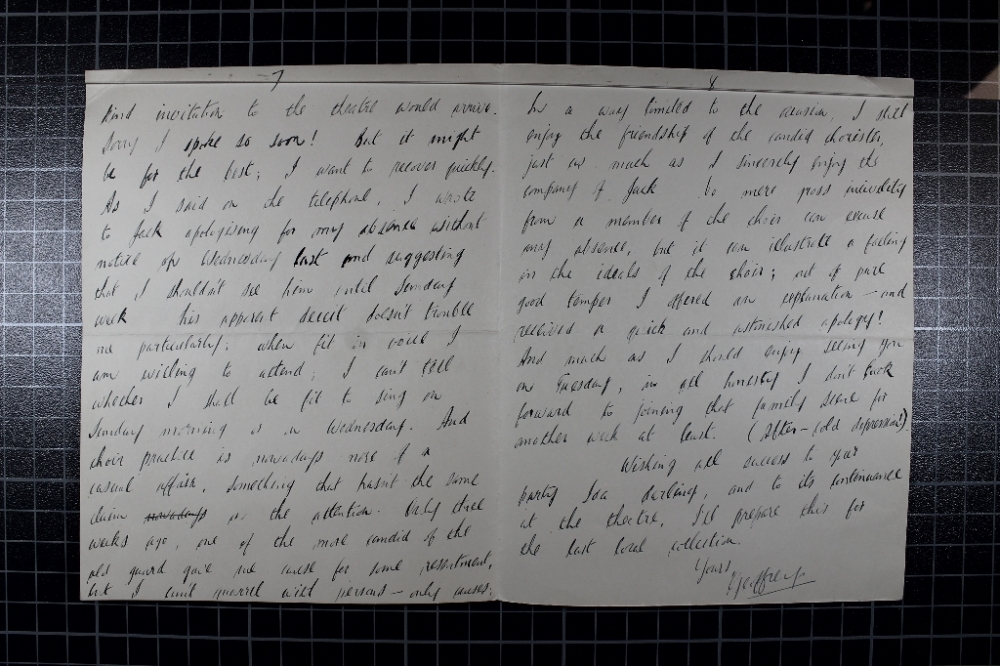 7
kind invitation to the theatre would arrive.
Sorry I spoke so soon! But it might
be for the best; I want to recover quickly.
As I said on the telephone, I wrote
to Jack apologising for my absence without
notice on Wednesday last and suggesting
that I shouldn't see him until Sunday
week his apparent deceit doesn't trouble
me particularly: when fit in voice I
am willing to attend; I can't tell
whether I shall be fit to sing on
Sunday morning or on Wednesday. And
choir practice is nowadays more of a
casual affair, something that hasn't the same
claim nowadays on the attention. Only three
weeks ago, one of the more candid of the
old guard gave me cause for some resentment,
but I can't quarrel with persons — only causes;
8
in a way limited to the occasion, I still
enjoy the friendship of the candid chorister,
just as much as I sincerely enjoy the
company of Jack No mere gross
from a member of the choir can excuse
my absence, but it can illustrate a failing
in the ideals of the choir; out of pure
good temper I offered an explanation — and
received a quick and astonished apology!
And much as I should enjoy seeing you
on Tuesday, in all honesty I don't look
forward to joining that family scene for
another week at least. (After-cold depression!).
Wishing all success to your
party darling, and to its continuance
at the theatre, I'll prepare this for
the last local collection.
Yours,
Geoffrey